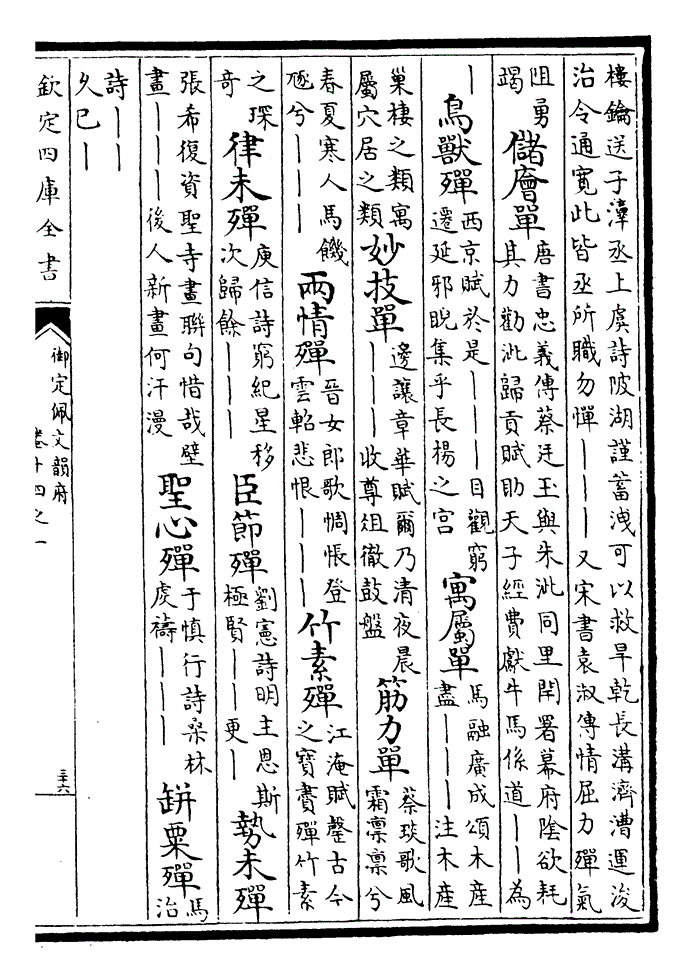 樓鑰送子漳丞上虞詩陂湖謹蓄洩可以救旱乾長溝濟漕運浚
治令通寛此皆丞所職勿憚丨丨丨又宋書袁淑傳情屈力殫氣
阻勇
竭
儲㑹單
唐書忠義傳蔡廷玉與朱泚同里閈署幕府陰欲耗
其力勸泚歸貢賦助天子經費獻牛馬係道丨丨為
丨
鳥獸殫
西京賦於是丨丨丨目觀窮
遷延邪睨集乎長楊之宫
寓屬單
馬融廣成頌木産
盡丨丨丨注木産
巢棲之類寓
屬穴居之類
妙技單
邊讓章華賦爾乃清夜晨
丨丨丨收尊俎徹鼓盤
筋力單
蔡琰歌風
霜凛凛兮
春夏寒人馬饑
豗兮丨丨丨
兩情殫
晉女郎歌惆悵登
雲軺悲恨丨丨丨
竹素殫
江淹賦罄古今
之寶賮殫竹素
之琛
奇
律未殫
庾信詩窮紀星移
次歸餘丨丨丨
臣節殫
劉憲詩明主恩斯
極賢丨丨更丨
勢未殫
張希復資聖寺畫聯句惜哉壁
畫丨丨丨後人新畫何汗漫
聖心殫
于慎行詩桑林
虔禱丨丨丨
缾粟殫
馬
治
詩丨丨
久已丨
欽定四庫全書
御定佩文韻府
卷十四之一
三十六